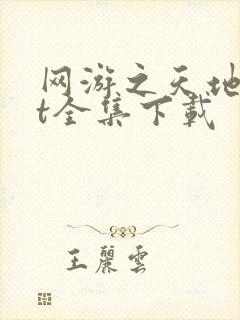 网游之天地
t全集下载
王麗雲